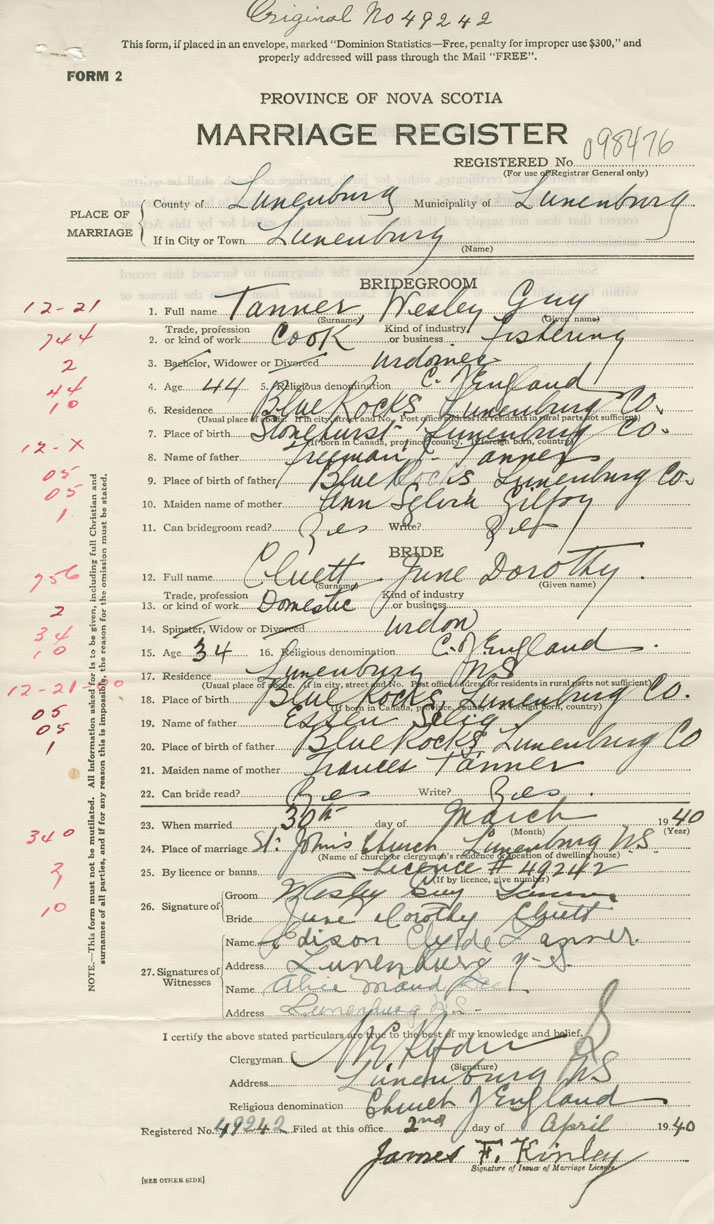 Original No 49242
This form, if placed in an envelope, marked "Dominion Statistics—Free, penalty for improper use $300," and
properly addressed will pass through the Mail "FREE".
FORM 2
PROVINCE OF NOVA SCOTIA
MARRIAGE REGISTER
REGISTERED No. 098476
(For use of Registrar General only)
PLACE OF MARRIAGE
County of Lunenburg Municipality of Lunenburg
If in City or Town Lunenburg
(Name)
BRIDEGROOM
12-21 1. Full name Tanner, Wesley Guy
(Surname) (Given name)
744 2. Trade, profession or kind of work Cook Kind of industry or business Fishering
2 3. Bachelor, Widower or Divorced Widower
44 4. Age 44 5. Religious denomination C. of England
10 6. Residence Blue Rocks Lunenburg Co.
(Usual place of abode. If in city, street and No. Post office address for residents in rural parts not sufficient)
12-X 7. Place of birth Stonehurst Lunenburg Co.
(If born in Canada, province, county. If foreign born, country)
8. Name of father Freeman Tanner
05 9. Place of birth of father Blue Rocks Lunenburg Co.
05 10. Maiden name of mother Ann Selvia
1 11. Can bridegroom read? Yes Write? Yes
BRIDE
756 12. Full name Cluett June Dorothy
(Surname) (Given name)
13. Trade, profession or kind of work Domestic Kind of industry or business
2 14. Spinster, Widow or Divorced Widow
34 15. Age 34 16. Religious denomination C. of England
10 17. Residence Lunenburg NS
(Usual place of abode. If in city, street and No. Post office address for residents in rural parts not sufficient)
12-21 18. Place of birth Blue Rocks, Lunenburg Co.
(If born in Canada, province, county. If foreign born, country)
05 19. Name of father Selig
05 20. Place of birth of father Blue Rocks Lunenburg Co
21. Maiden name of mother Frances Tanner
1 22. Can bride read? Yes Write? Yes
23. When married 30th day of March 1940
(Month) (Year)
340 24. Place of marriage St. John's Church Lunenburg N.S.
(Name of church or clergyman's residence or location of dwelling house)
25. By licence or banns Licence # 49242
(If by licence, give number)
26. Signature of
Groom Wesley Guy Tanner
Bride June Dorothy Cluett
10
27. Signatures of Witnesses
Name Edison Clyde Tanner.
Address Lunenburg N-S
Name Alice Maud
Address Lunenburg N.S.
I certify the above stated particulars are true to the best of my knowledge and belief.
Clergyman
(Signature)
Address Lunenburg NS
Religious denomination Church of England
Registered No. 49242 Filed at this office 2nd day of April 1940
James F. Kinley
Signature of Issuer of Marriage License
[SEE OTHER SIDE]
NOTE.—This form must not be mutilated. All information asked for is to be given, including full Christian and
surnames of all parties, and if for any reason this is impossible, the reason for the omission must be stated.